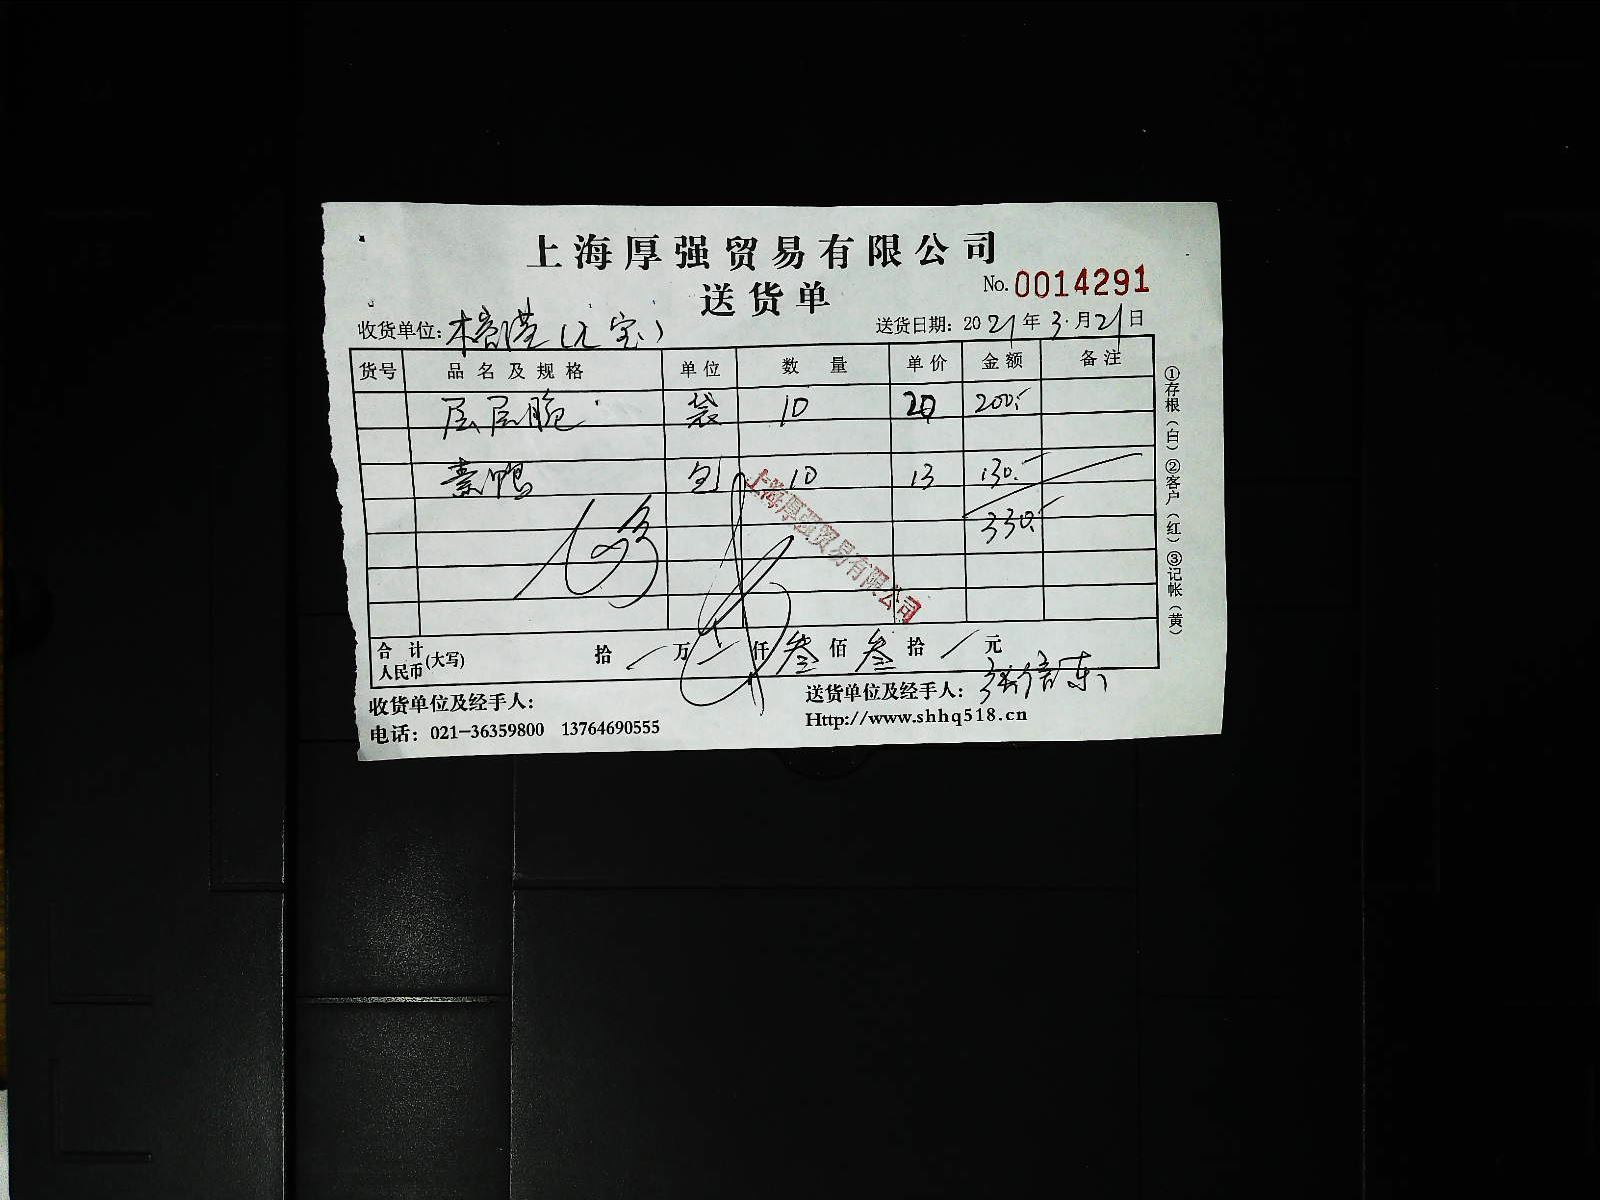 上海厚强贸易有限公司
送货单
No. 0014291
收货单位:
送货日期: 2021年3月21日
货号 品名及规格 单位 数量 单价 金额 备注
层层脆 袋 10 20 200.-
素鸭 包 10 13 130.-
330.-
上海厚强贸易有限公司
合计人民币(大写) 拾 / 万 / 仟 叁 佰 叁 拾 / 元
收货单位及经手人:
送货单位及经手人:
电话: 021-36359800 13764690555
Http://www.shhq518.cn
①存根(白) ②客户(红) ③记帐(黄)